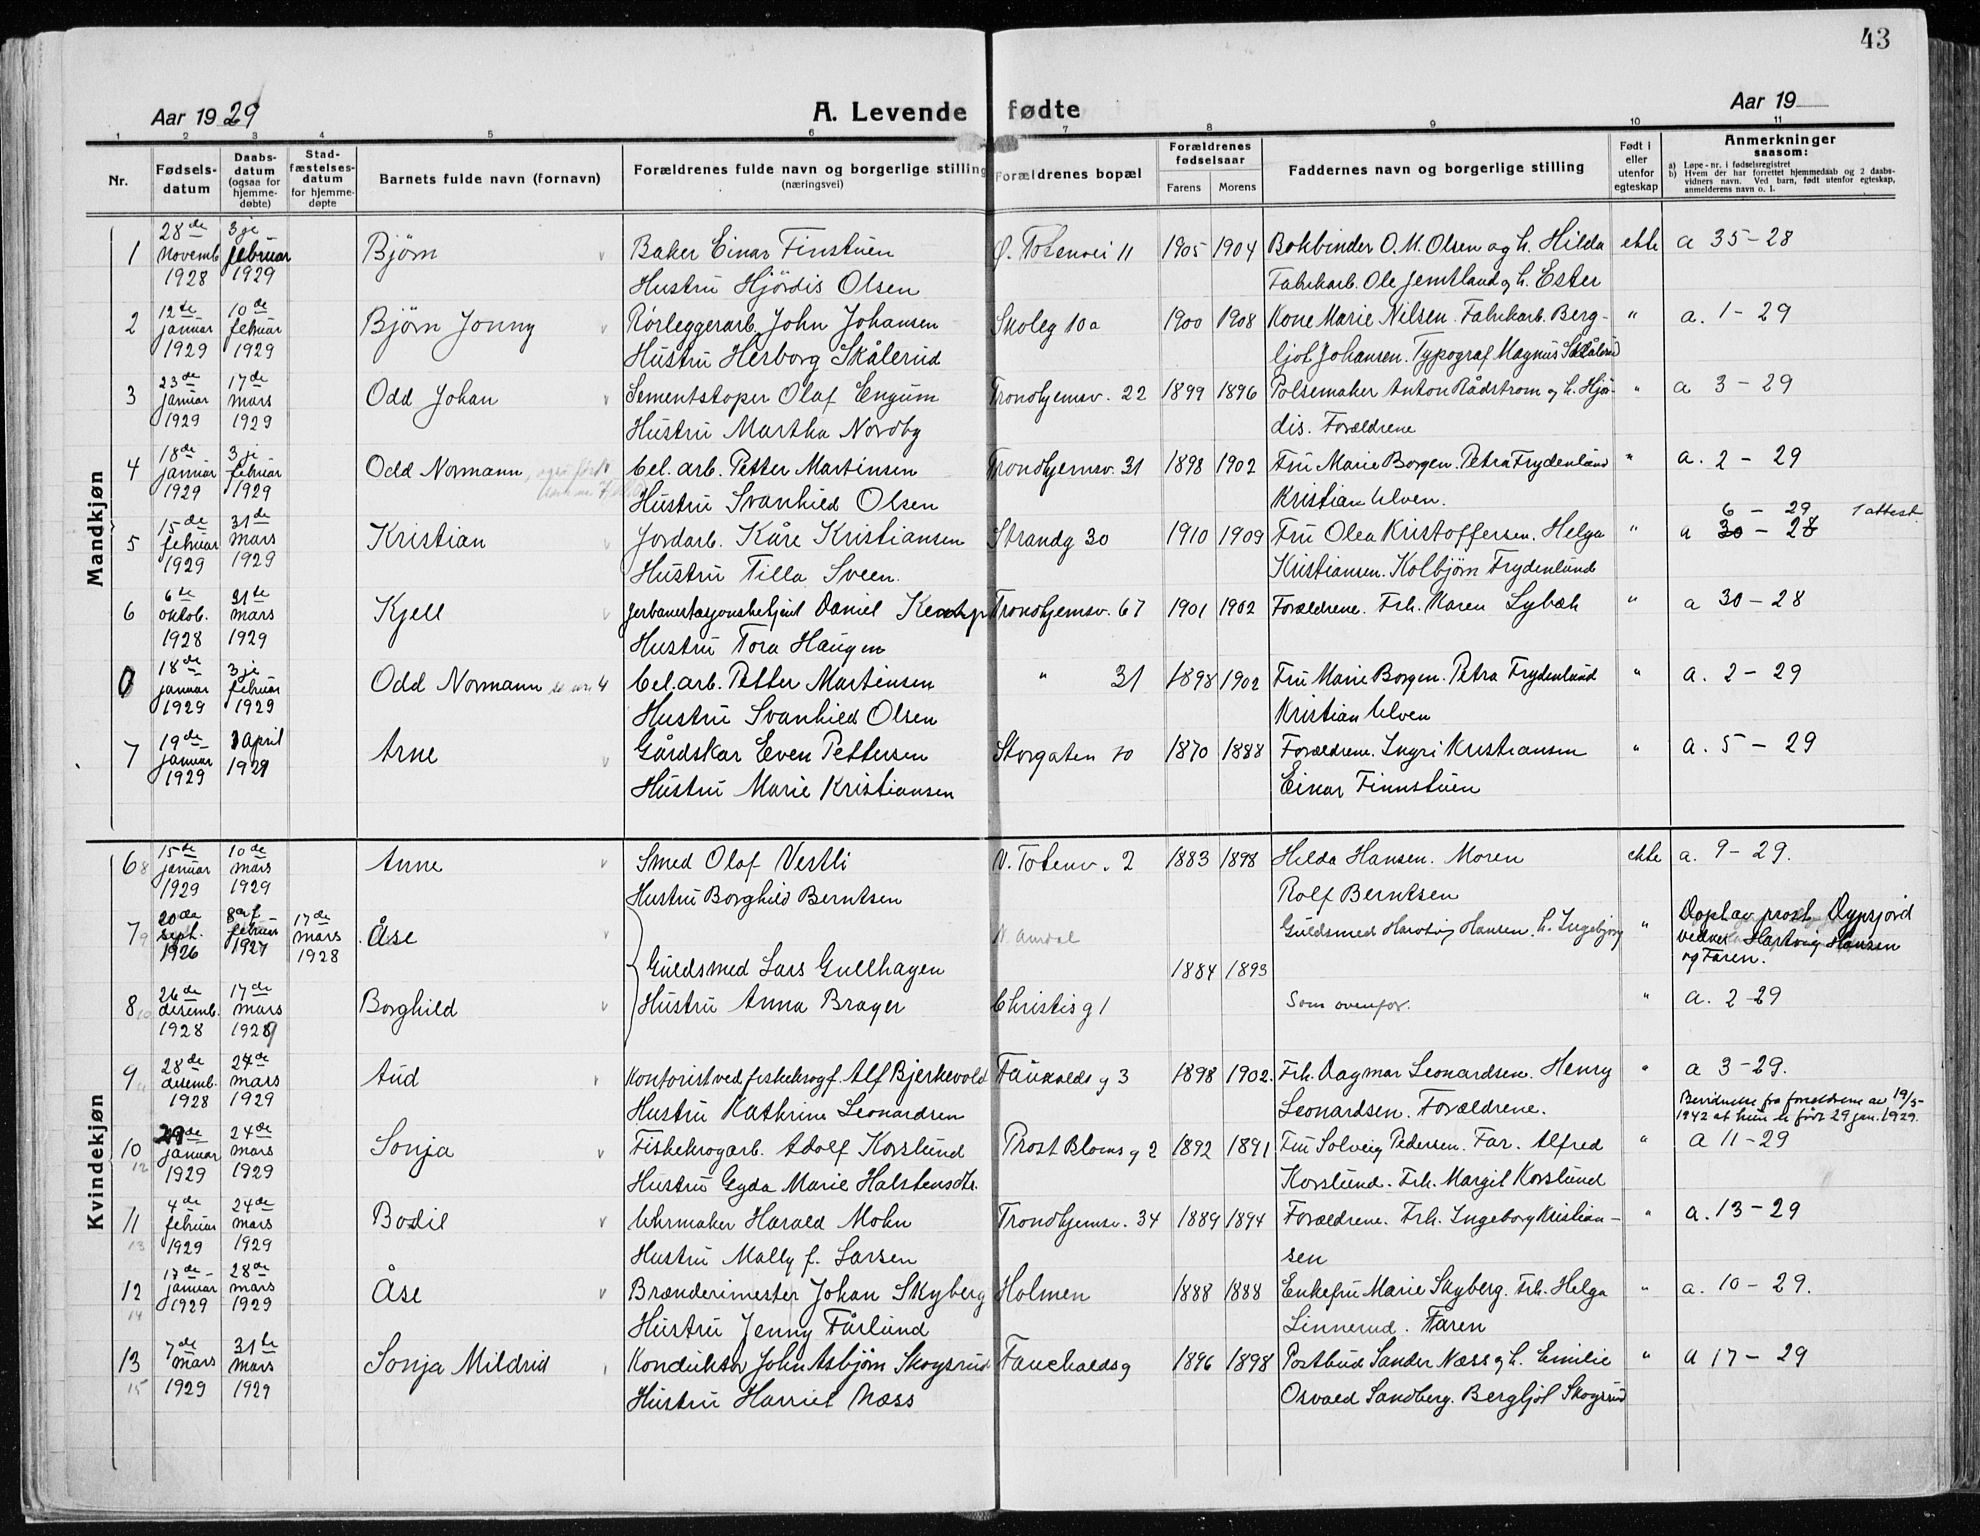 43
Aar 1929 A. Levende fødte Aar 19
1 2 3 4 5 6 7 8 9 10 11
Nr. Fødsels-datum Daabs-datum (ogsaa for hjemme-døbte) Stad-fæstelses-datum for hjemme-døpte Barnets fulde navn (fornavn) Forældrenes fulde navn og borgerlige stilling (næringsvei) Forældrenes bopæl Forældrenes fødselsaar Farens Morens Faddernes navn og borgerlige stilling Født i eller utenfor egteskap Anmerkninger saasom:
a) Løpe-nr. i fødselsregistret
b) Hvem der har forrettet hjemmedaab og 2 daabsvidners navn. Ved barn, født utenfor egteskap, anmelderens navn o. l.
Mandkjøn
1 28de novemb. 1928 3je februar 1929 Bjørn Baker Einar Finstuen Ø. Totenvei 11 1905 1904 Bokbinder O. M. Olsen og h. Hilda ekte a 35-28
Hustru Hjördis Olsen Fabrikarb. Ole Jemtland og h. Ester
2 12te januar 1929 10de februar 1929 Bjørn Jonny Rörleggerarb. John Johansen Skoleg 10a 1900 1908 Kone Marie Nilsen. Fabrikarb. Berg- " a. 1-29
Hustru Herborg Skålerud ljot Johansen. Typograf Magnus Skålerud
3 23de januar 1929 17de mars 1929 Odd Johan Sementstøper Olaf Engum Trondhjemsv. 22 1899 1896 Pølsemaker Anton Rådstrøm og h. Hjör- " a 3-29
Hustru Martha Nordby dis. Forældrene
4 18de januar 1929 3je februar 1929 Odd Normann Cel. arb. Petter Martinsen Trondhjemsv. 31 1898 1902 Fru Marie Borgen. Petra Frydenlund " a. 2-29
Hustru Svanhild Olsen Kristian Ulven.
5 15de februar 1929 31de mars 1929 Kristian Jordarb. Kåre Kristiansen Strandg 30 1910 1909 Fru Olea Kristoffersen. Helga " a 30-28 6-29 1 attest.
Hustru Tilla Sveen. Kristiansen. Kolbjørn Frydenlund
6 6te oktob. 1928 31te mars 1929 Kjell Jerbanestasjonsbetjent Daniel Trondhjemsv. 67 1901 1902 Forældrene. Frk. Maren Lybæk " a 30-28
Hustru Tora Haugen
0 18de januar 1929 3je februar 1929 Odd Normann se nr. 4 Cel. arb. Petter Martinsen " 31 1898 1902 Fru Marie Borgen. Petra Frydenlund " a. 2-29
Hustru Svanhild Olsen Kristian Ulven
7 19de januar 1929 1 April 1929 Arne Gårdskar Even Pettersen Storgaten 10 1870 1888 Forældrene. Ingri Kristiansen " a. 5-29
Hustru Marie Kristiansen Einar Finnstuen
Kvindekjøn
6 8 15de januar 1929 10de mars 1929 Anne Smed Olaf Vestli V. Totenv. 2 1883 1898 Hilda Hansen. Moren ekte a. 9-29.
Hustru Borghild Berntsen Rolf Berntsen
7 9 20de sept. 1926 8de februar 1927 17de mars 1928 Åse Guldsmed Lars Gullhagen 1884 1893 Guldsmed Hartvig Hansen. h. Ingebjørg " Döpt av prost Dypsjord
vidner Hartvig Hansen
og Faren.
8 10 26de desemb. 1928 17de mars 1929 Borghild Hustru Anna Brager Christisg 1 Som ovenfor. " a. 2-29
9 11 28de desemb. 1928 24de mars 1929 Aud Kontorist ved fiskekrogf. Alf Bjerkevold Fauxaldsg 3 1898 1902. Frk. Dagmar Leonardsen. Henry " a 3-29.
Hustru Kathrine Leonardsen Leonardsen. Forældrene. Bevidnelse fra foreldrene av 19/5-
1942 at hun er født 29 jan. 1929.
10 12 29de januar 1929 24de mars 1929 Sonja Fiskekrogarb. Adolf Korslund Prost Bloms g 2 1892 1891 Fru Solveig Pedersen. Far. Alfred " a 11-29
Hustru Gyda Marie Halstensdtr. Korslund. Frk. Margit Korslund
11 13 4de februar 1929 24de mars 1929 Bodil Uhrmaker Harald Mohn Trondhjemsv. 34 1889 1894 Forældrene. Frk. Ingeborg Kristian- " a. 13-29
Hustru Mally f. Larsen sen
12 14 17de januar 1929 28de mars 1929 Åse Brænderimester Johan Skyberg Holmen 1888 1888 Enkefru Marie Skyberg. Frk. Helga " a. 10-29.
Hustru Jenny Fårlund Linnerud. Faren
13 15 7de mars 1929 31te mars 1929 Sonja Mildrid Konduktør John Asbjørn Skogsrud Faucholdsg 1896 1898 Postbud Sander Næss og h. Emilie " a 17-29
Hustru Harriet Næss Osvald Sandberg. Bergljot Skogsrud